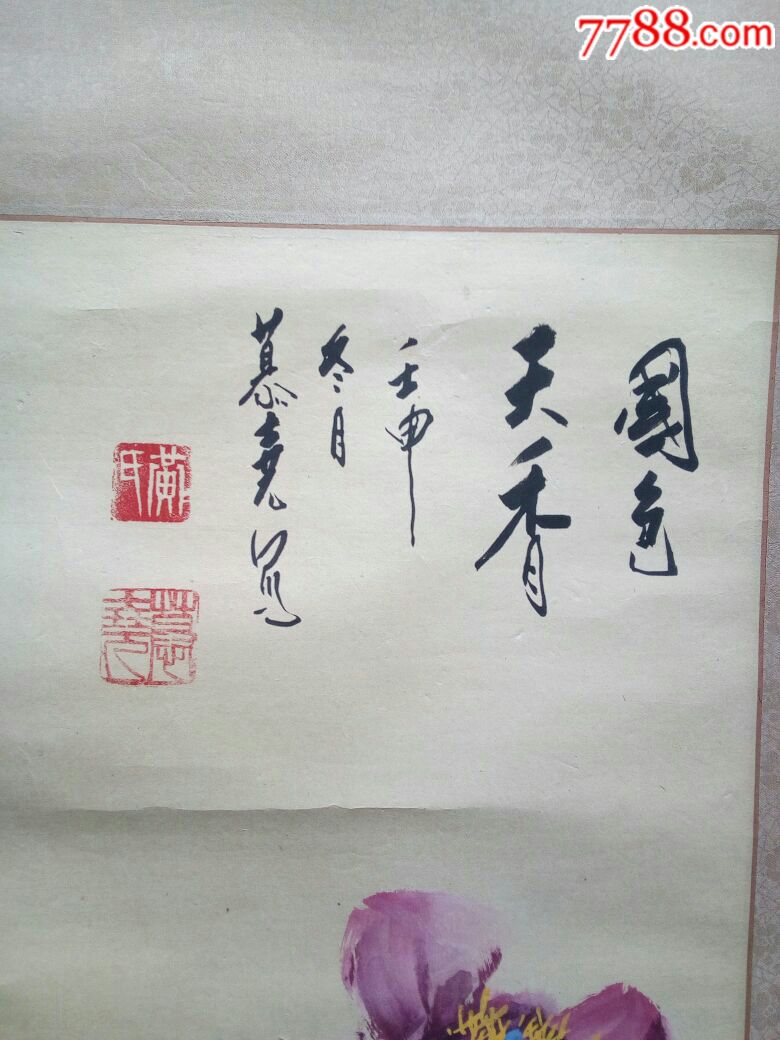 7788.com
國色
天香
壬申
冬月
慕堯寫
黃氏
慕堯